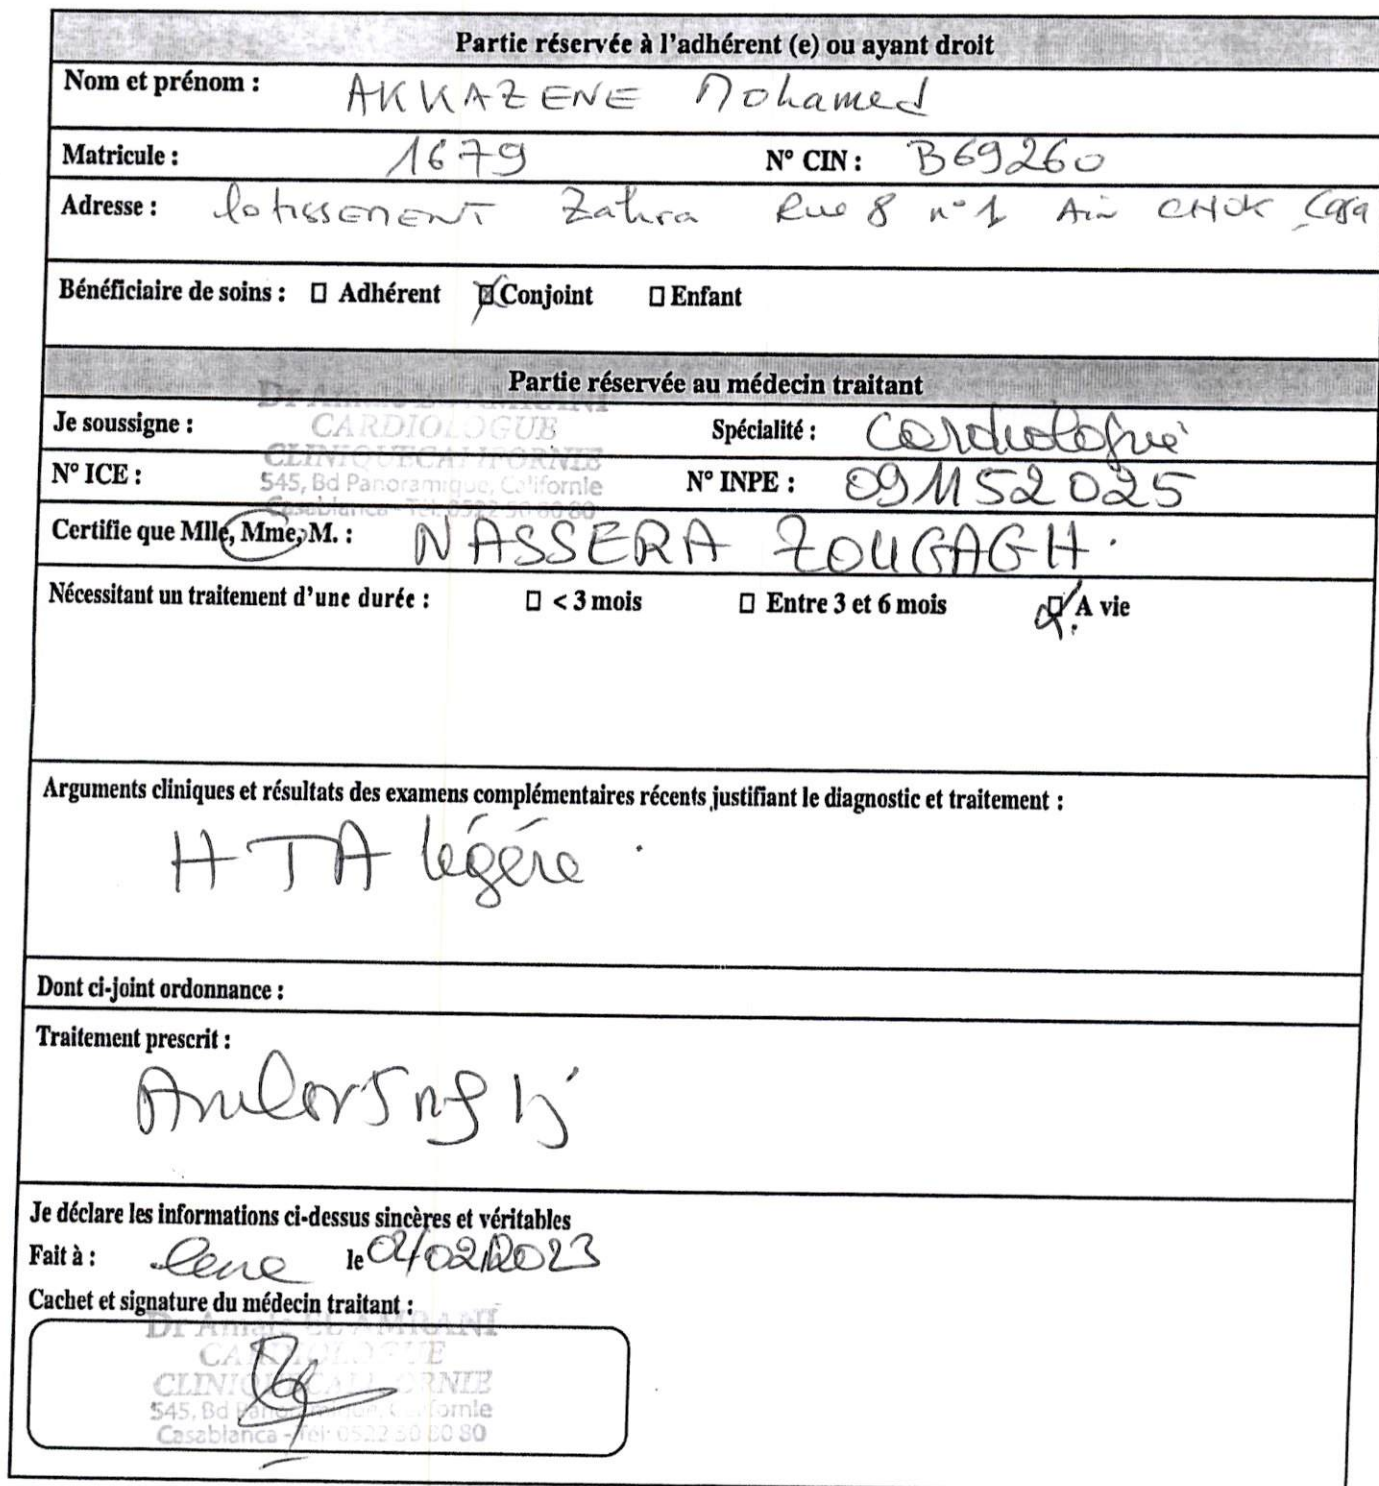 Partie réservée à l'adhérent (e) ou ayant droit
Nom et prénom : AKKAZENE Mohamed
Matricule : 1679 N° CIN : B69260
Adresse : lotissEMENT Zahra Rue 8 n° 1 Ain CHOK Casa
Bénéficiaire de soins : ☐ Adhérent ☒ Conjoint ☐ Enfant
Partie réservée au médecin traitant
Dr EL AMRANI
Je soussigne : CARDIOLOGUE Spécialité : Cardiologue
CLINIQUE CALIFORNIE
N° ICE : 545, Bd Panoramique, Californie N° INPE : 091152025
Casablanca - Tél: 0522 50 80 80
Certifie que Mlle, Mme, M. : NASSERA ZOUGAGH.
Nécessitant un traitement d'une durée : ☐ < 3 mois ☐ Entre 3 et 6 mois ☒ A vie
Arguments cliniques et résultats des examens complémentaires récents justifiant le diagnostic et traitement :
HTA légère.
Dont ci-joint ordonnance :
Traitement prescrit :
Amlor 5mg 1/j
Je déclare les informations ci-dessus sincères et véritables
Fait à : le 02/02/2023
Cachet et signature du médecin traitant :
Dr EL AMRANI
CARDIOLOGUE
CLINIQUE CALIFORNIE
545, Bd Panoramique, Californie
Casablanca - Tél: 0522 50 80 80